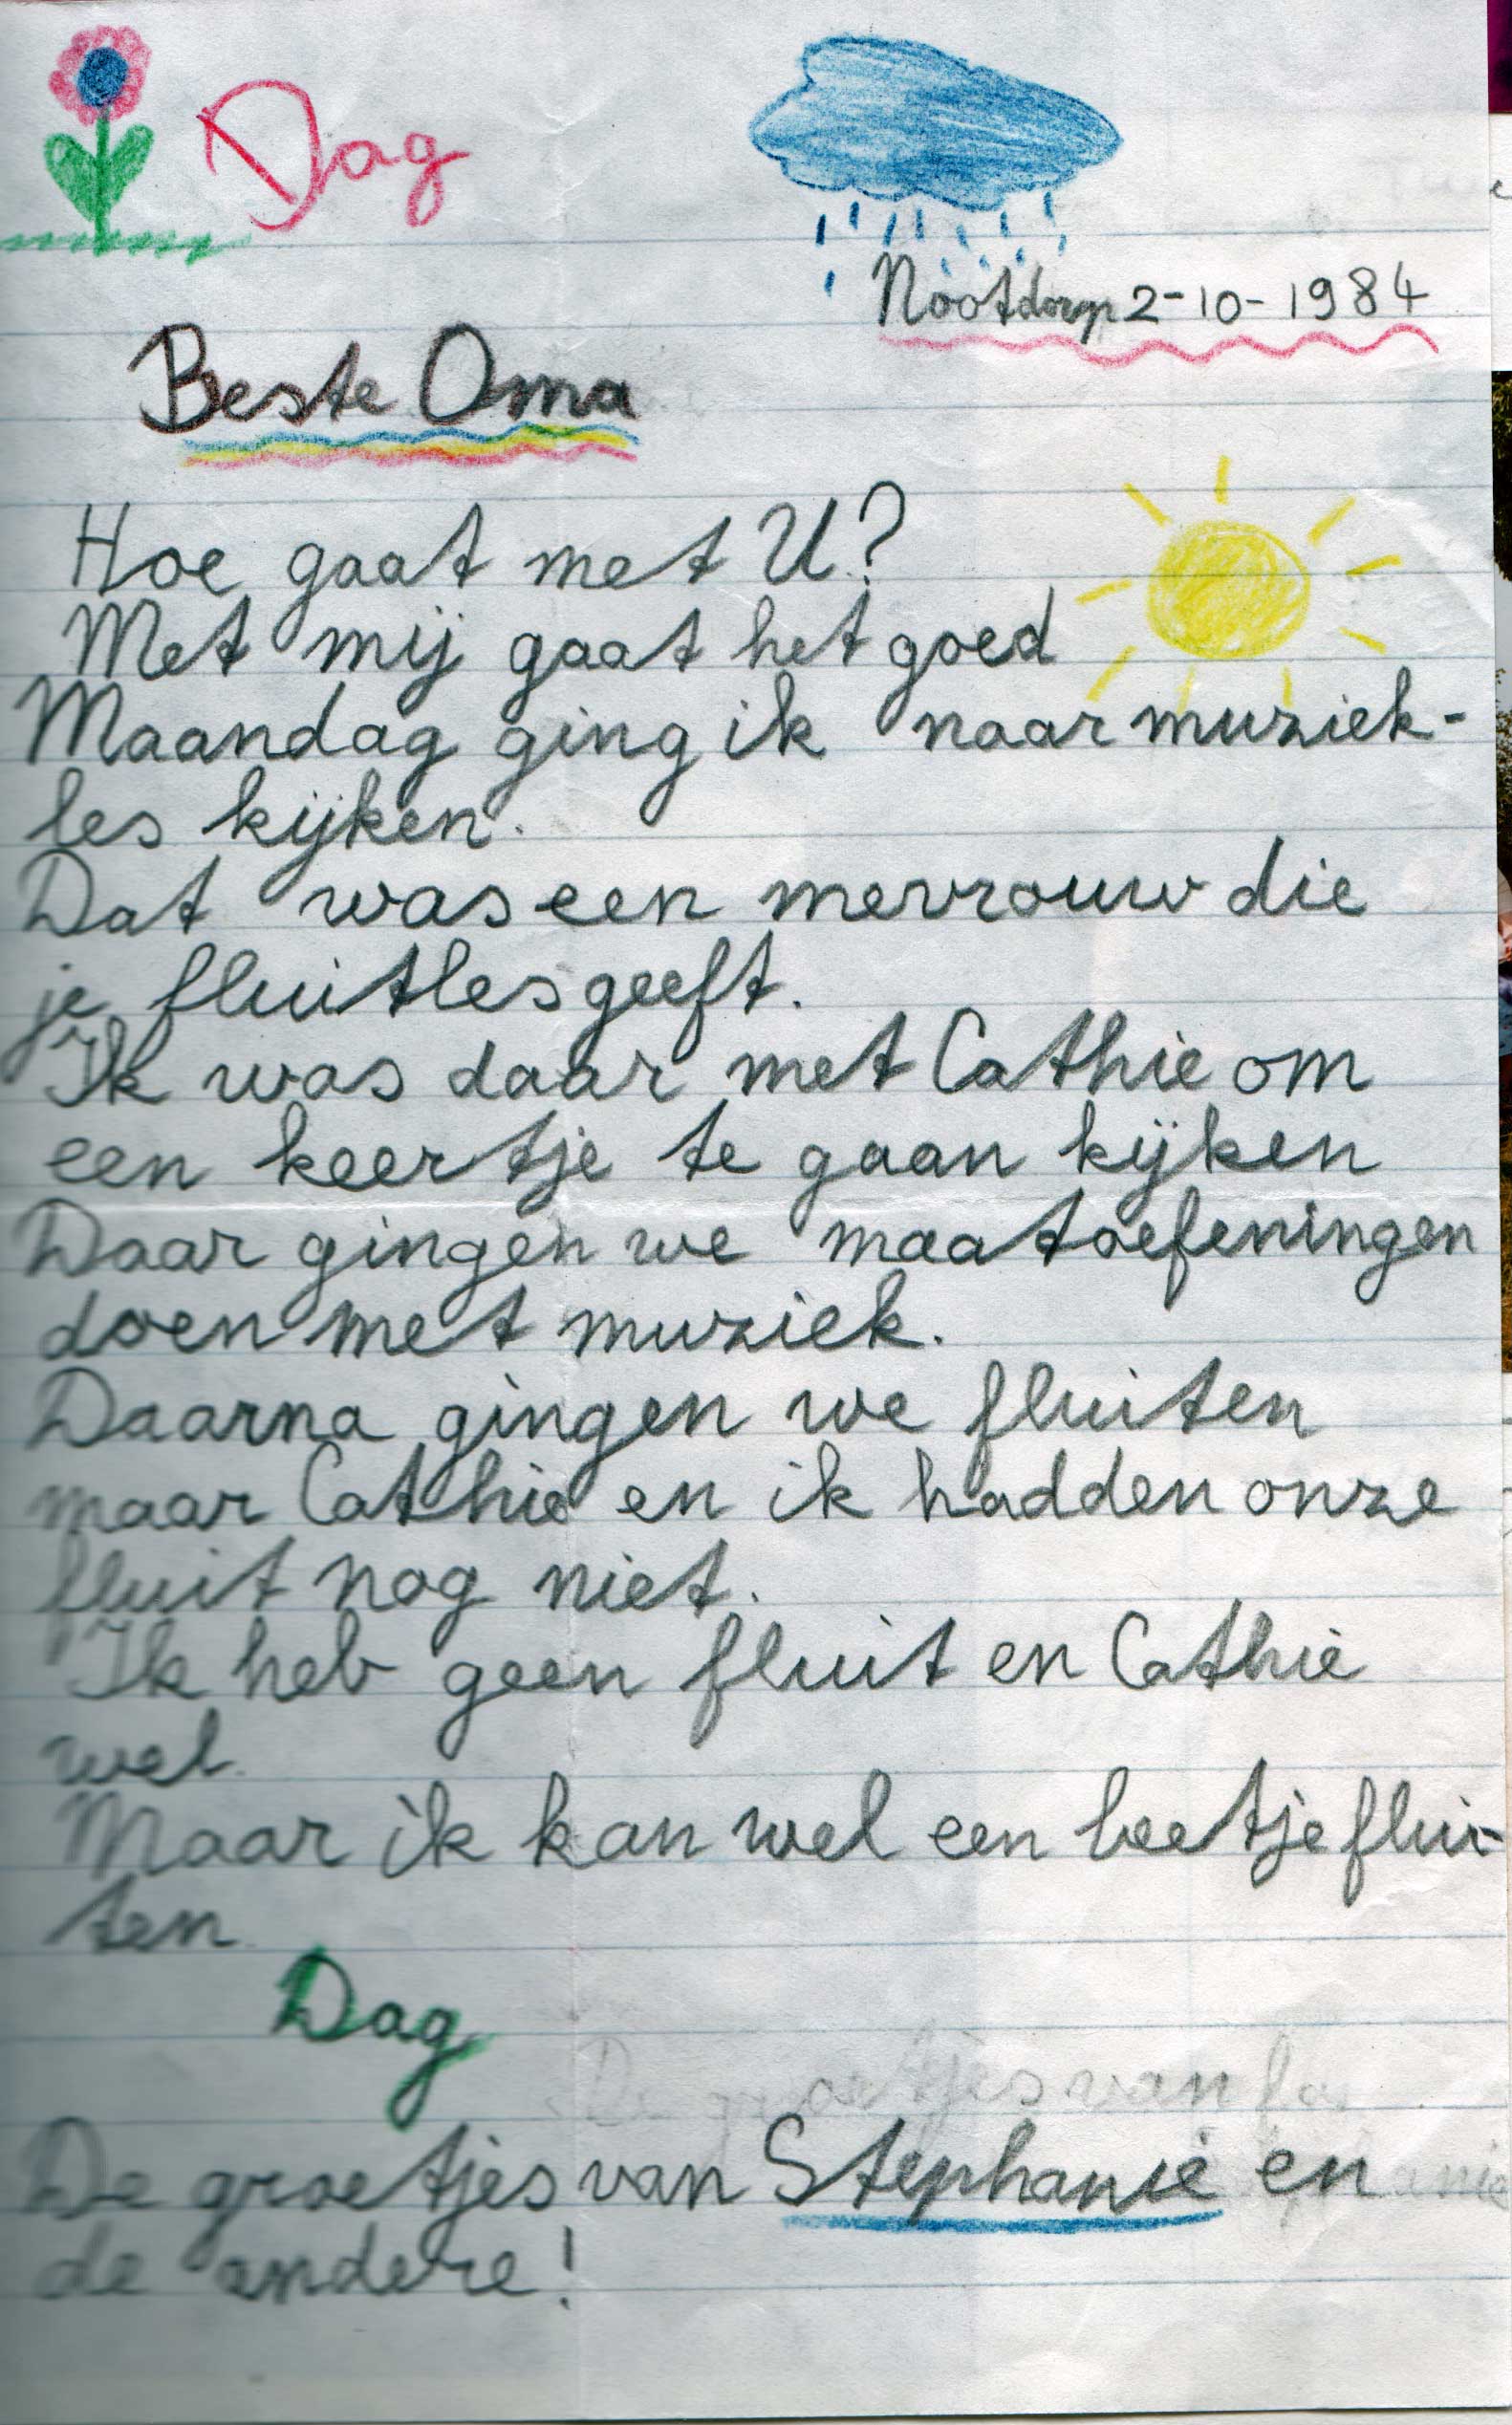 Dag
Nootdorp 2-10-1984
Beste Oma
Hoe gaat met U?
Met mij gaat het goed
Maandag ging ik naar muziek-
les kijken.
Dat was een mevrouw die
je fluitles geeft.
Ik was daar met Cathie om
een keertje te gaan kijken
Daar gingen we maatoefeningen
doen met muziek.
Daarna gingen we fluiten
maar Cathie en ik hadden onze
fluit nog niet.
Ik heb geen fluit en Cathie
wel.
Maar ik kan wel een beetje flui-
ten.
Dag
De groetjes van
De groetjes van Stephanie en
de andere!